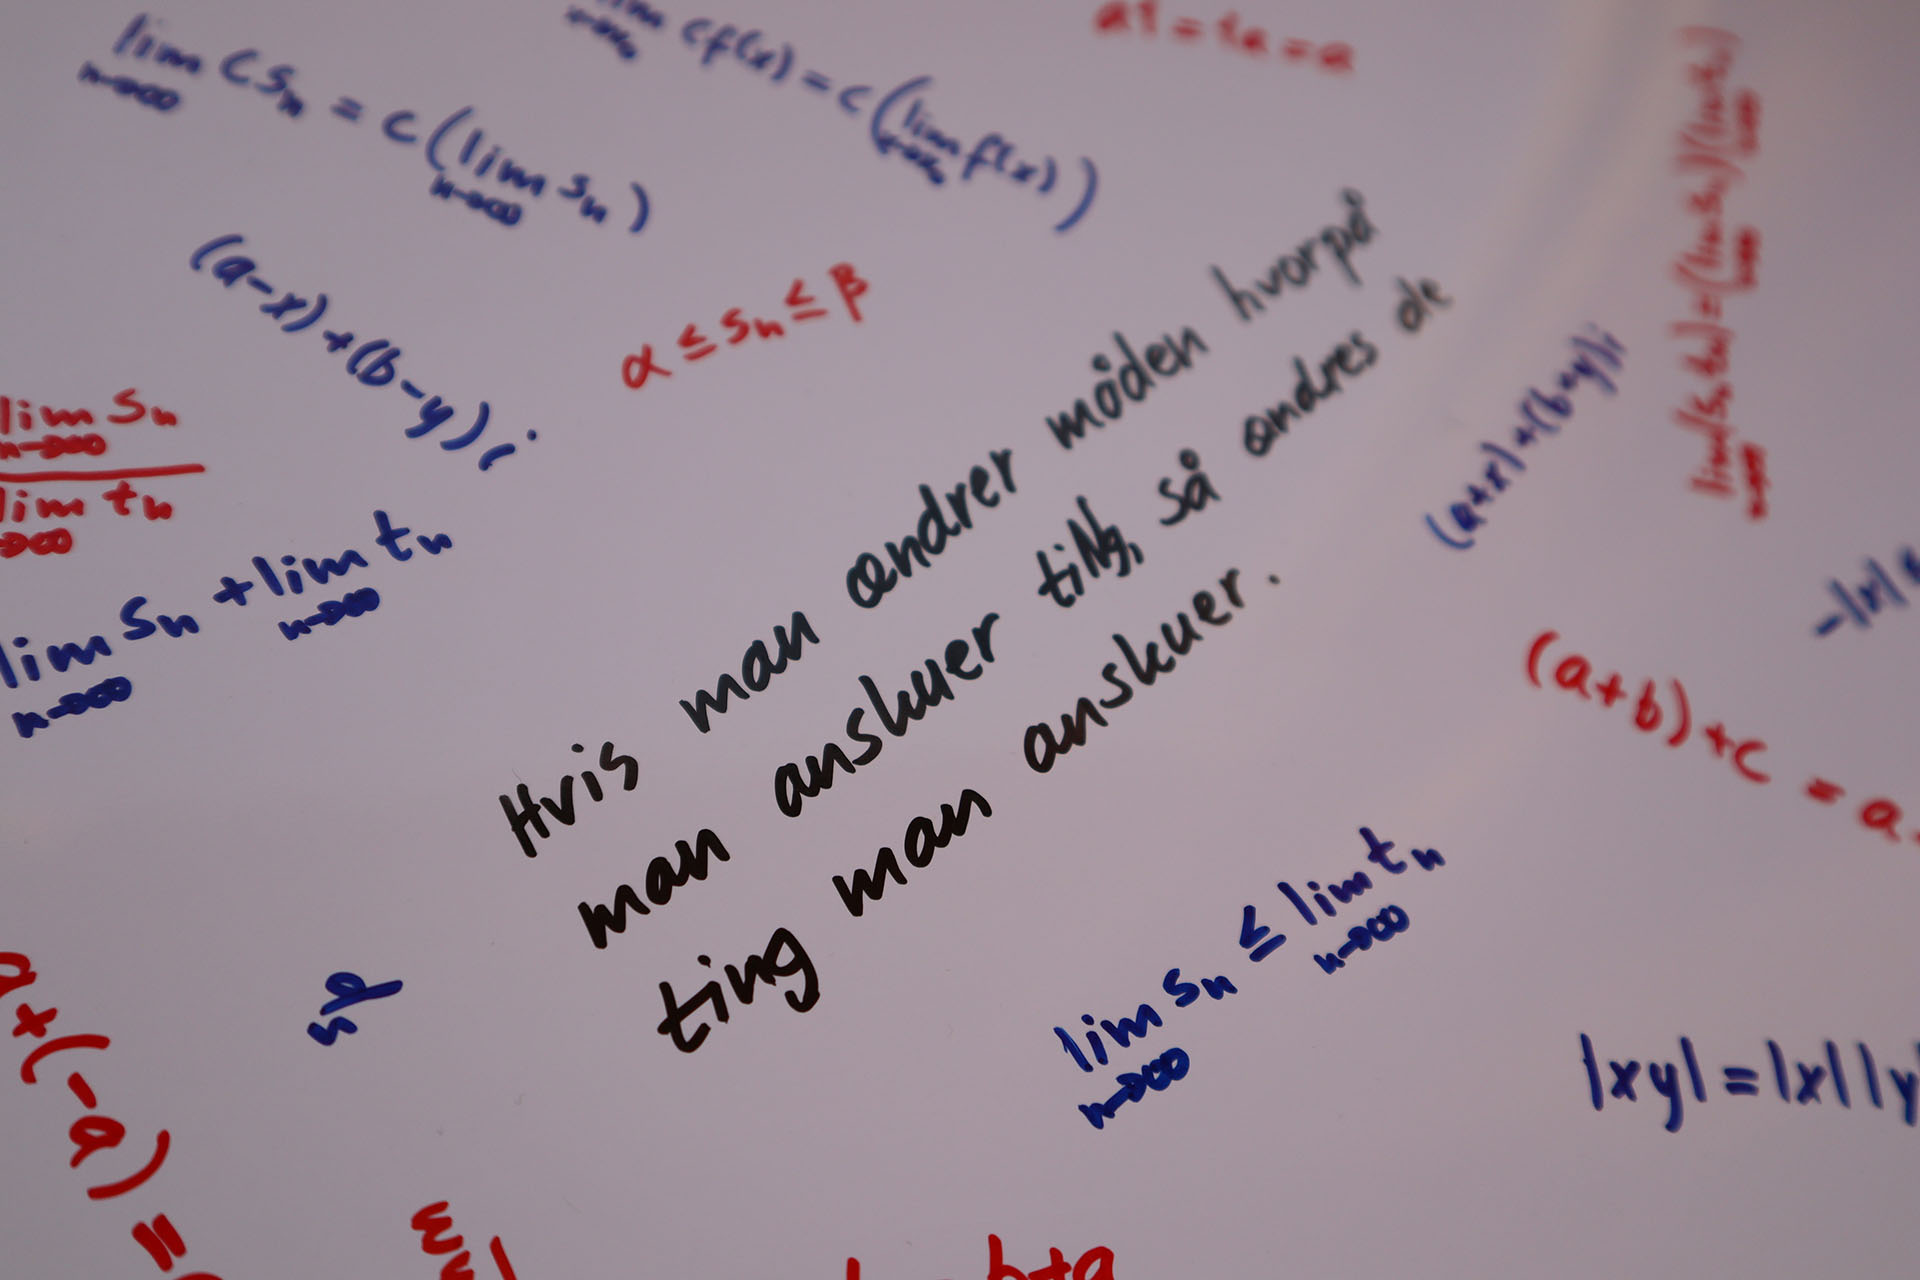 lim c s_n = c ( lim s_n )
n→∞ n→∞
cf(x) = c ( lim f(x) )
a1 = 1a = a
(a-x)+(b-y)i
α ≤ s_n ≤ β
lim s_n
n→∞
lim t_n
n→∞
lim s_n + lim t_n
n→∞ n→∞
Hvis man ændrer måden hvorpå
man anskuer ting, så ændres de
ting man anskuer.
(a+x)+(b+y)i
lim(s_n t_n) = (lim s_n)(lim t_n)
-|x| ≤
(a+b)+c = a
lim s_n ≤ lim t_n
n→∞ n→∞
|xy| = |x||y
a+(-a) =
b+a